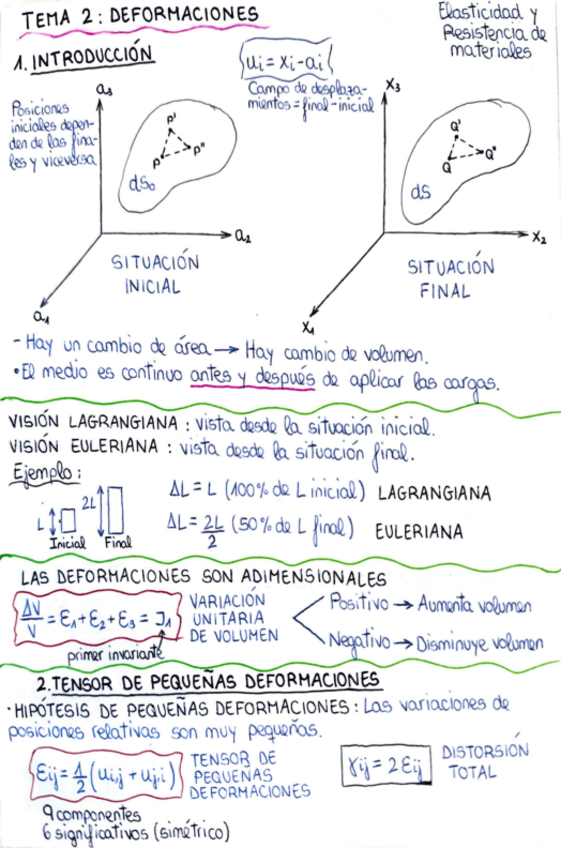 TEMA 2: DEFORMACIONES
Elasticidad y
Resistencia de
materiales
1. INTRODUCCIÓN
ui = xi - ai
Campo de desplaza-
mientos = final - inicial
Posiciones
iniciales depen-
den de las fina-
les y viceversa
a3
P'
P
P"
dS0
a2
a1
SITUACIÓN
INICIAL
X3
Q'
Q
Q"
dS
X2
X1
SITUACIÓN
FINAL
- Hay un cambio de área → Hay cambio de volumen.
• El medio es continuo antes y después de aplicar las cargas.
VISIÓN LAGRANGIANA : vista desde la situación inicial.
VISIÓN EULERIANA : vista desde la situación final.
Ejemplo:
L
Inicial
2L
Final
ΔL = L (100% de L inicial) LAGRANGIANA
ΔL = 2L/2 (50% de L final) EULERIANA
LAS DEFORMACIONES SON ADIMENSIONALES
ΔV/V = ε1 + ε2 + ε3 = J1
primer invariante
VARIACIÓN
UNITARIA
DE VOLUMEN
Positivo → Aumenta volumen
Negativo → Disminuye volumen
2. TENSOR DE PEQUEÑAS DEFORMACIONES
· HIPÓTESIS DE PEQUEÑAS DEFORMACIONES : Las variaciones de
posiciones relativas son muy pequeñas.
εij = 1/2 (ui,j + uj,i)
TENSOR DE
PEQUEÑAS
DEFORMACIONES
γij = 2 εij
DISTORSIÓN
TOTAL
9 componentes
6 significativos (simétrico)